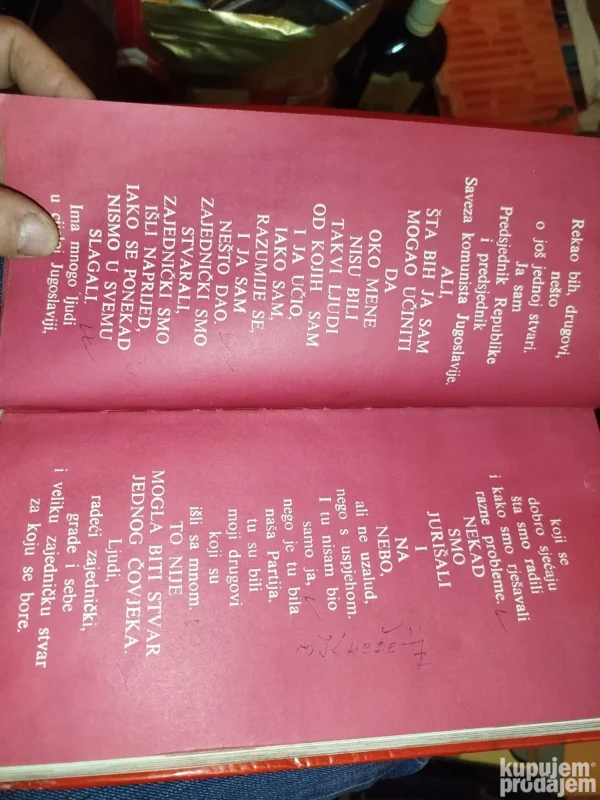 Rekao bih, drugovi,
nešto
o još jednoj stvari.
Ja sam
Predsjednik Republike
i predsjednik
Saveza komunista Jugoslavije,
ALI,
ŠTA BIH JA SAM
MOGAO UČINITI
DA
OKO MENE
NISU BILI
TAKVI LJUDI
OD KOJIH SAM
I JA UČIO,
IAKO SAM,
RAZUMIJE SE,
I JA SAM
NEŠTO DAO.
ZAJEDNIČKI SMO
STVARALI,
ZAJEDNIČKI SMO
IŠLI NAPRIJED,
IAKO SE PONEKAD
NISMO U SVEMU
SLAGALI,
Ima mnogo ljudi
u Jugoslaviji,
koji se
dobro sjećaju
šta smo radili
i kako smo rješavali
razne probleme.
NEKAD
SMO
JURIŠALI
I
NA
NEBO,
ali ne uzalud,
nego s uspjehom.
I tu nisam bio
samo ja,
nego je tu bila
naša Partija,
tu su bili
moji drugovi
koji su
išli sa mnom.
TO NIJE
MOGLA BITI STVAR
JEDNOG ČOVJEKA.
Ljudi,
radeći zajednički,
grade i sebe
i veliku zajedničku stvar
za koju se bore.
kupujem
prodajem